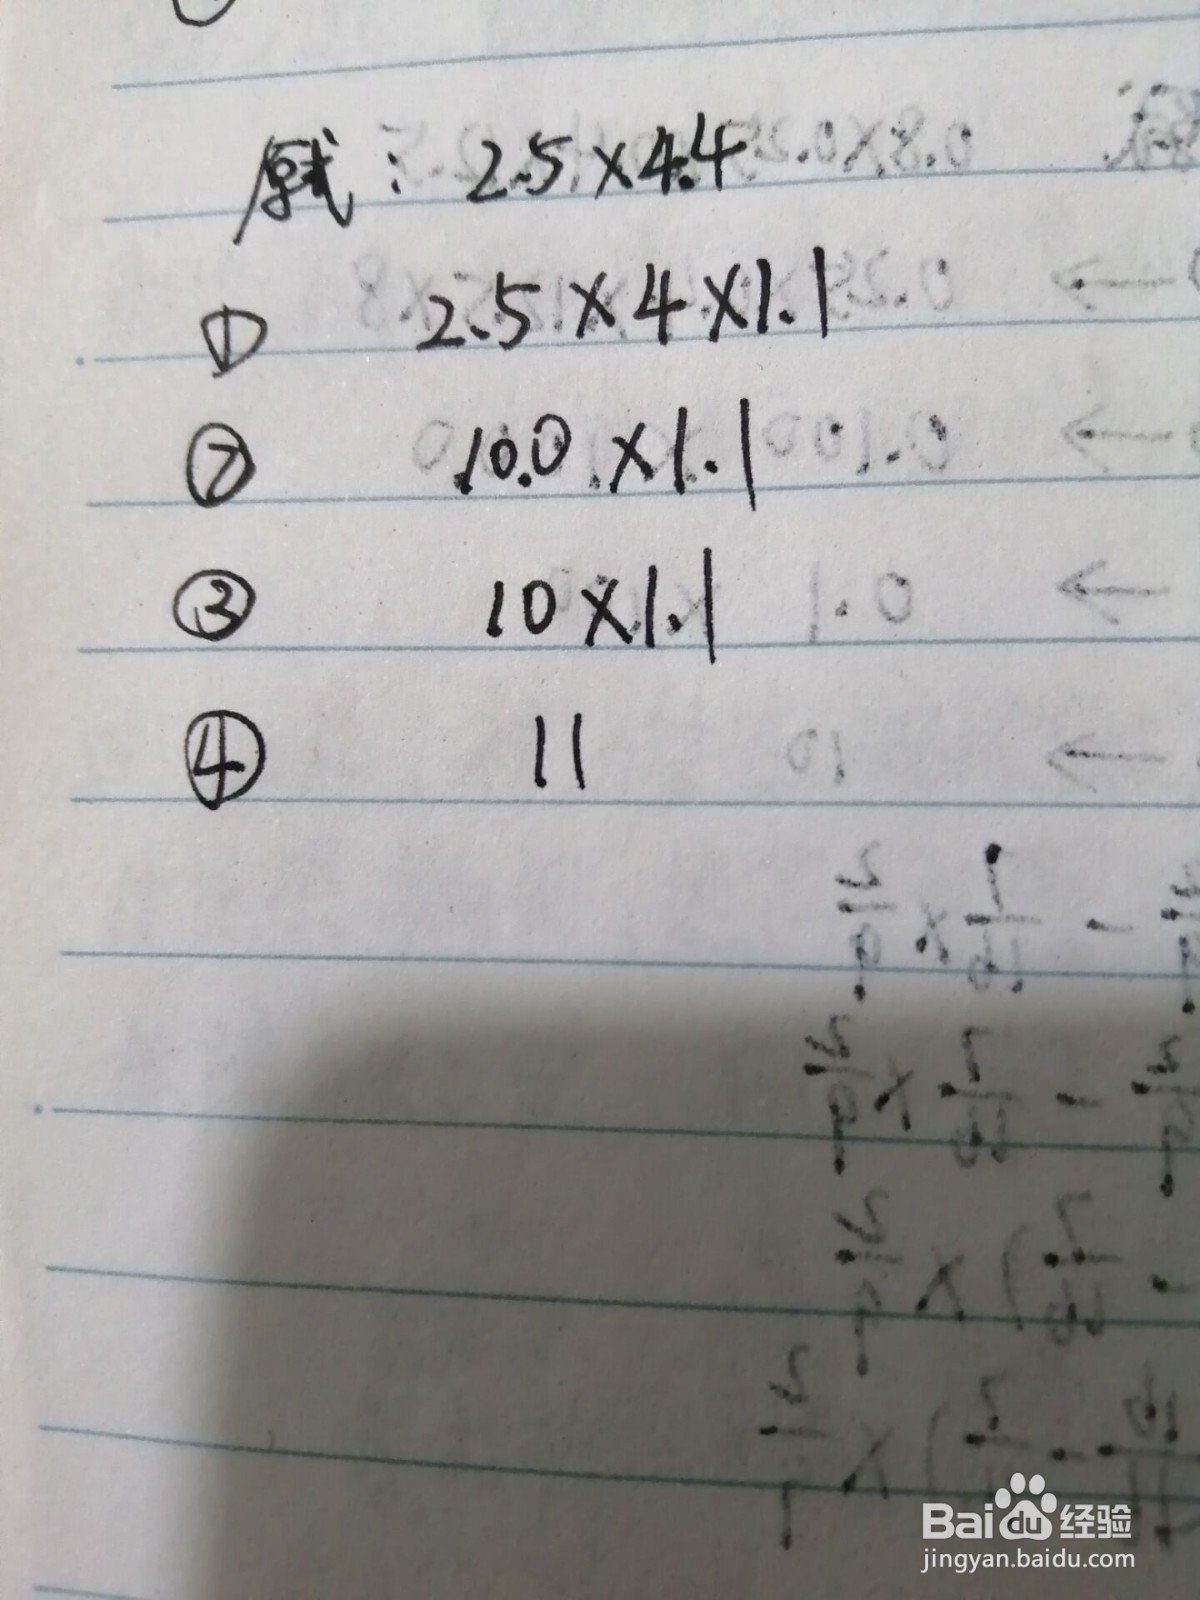 原式：2.5×4.4
① 2.5×4×1.1
② 10.0×1.1
③ 10×1.1
④ 11
Baidu经验
jingyan.baidu.com